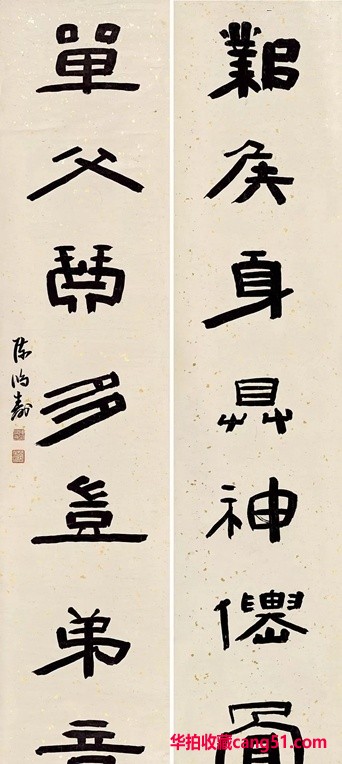 鄴侯身具神僊骨
單父琴多豈弟音
陳鴻壽
华拍收藏cang51.com